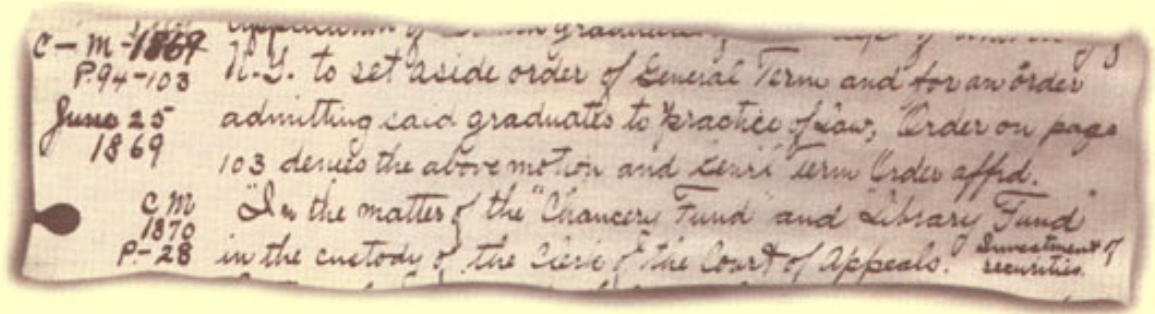 C-M-1869
P. 94-103
June 25
1869
C M
1870
P-28
N.Y. to set aside order of General Term and for an order
admitting said graduates to practice of law, Order on page
103 denies the above motion and Genrl Term Order affd.
"In the matter of the "Chancery Fund" and "Library Fund"
in the custody of the Clerk of the Court of Appeals. Investment of
securities.